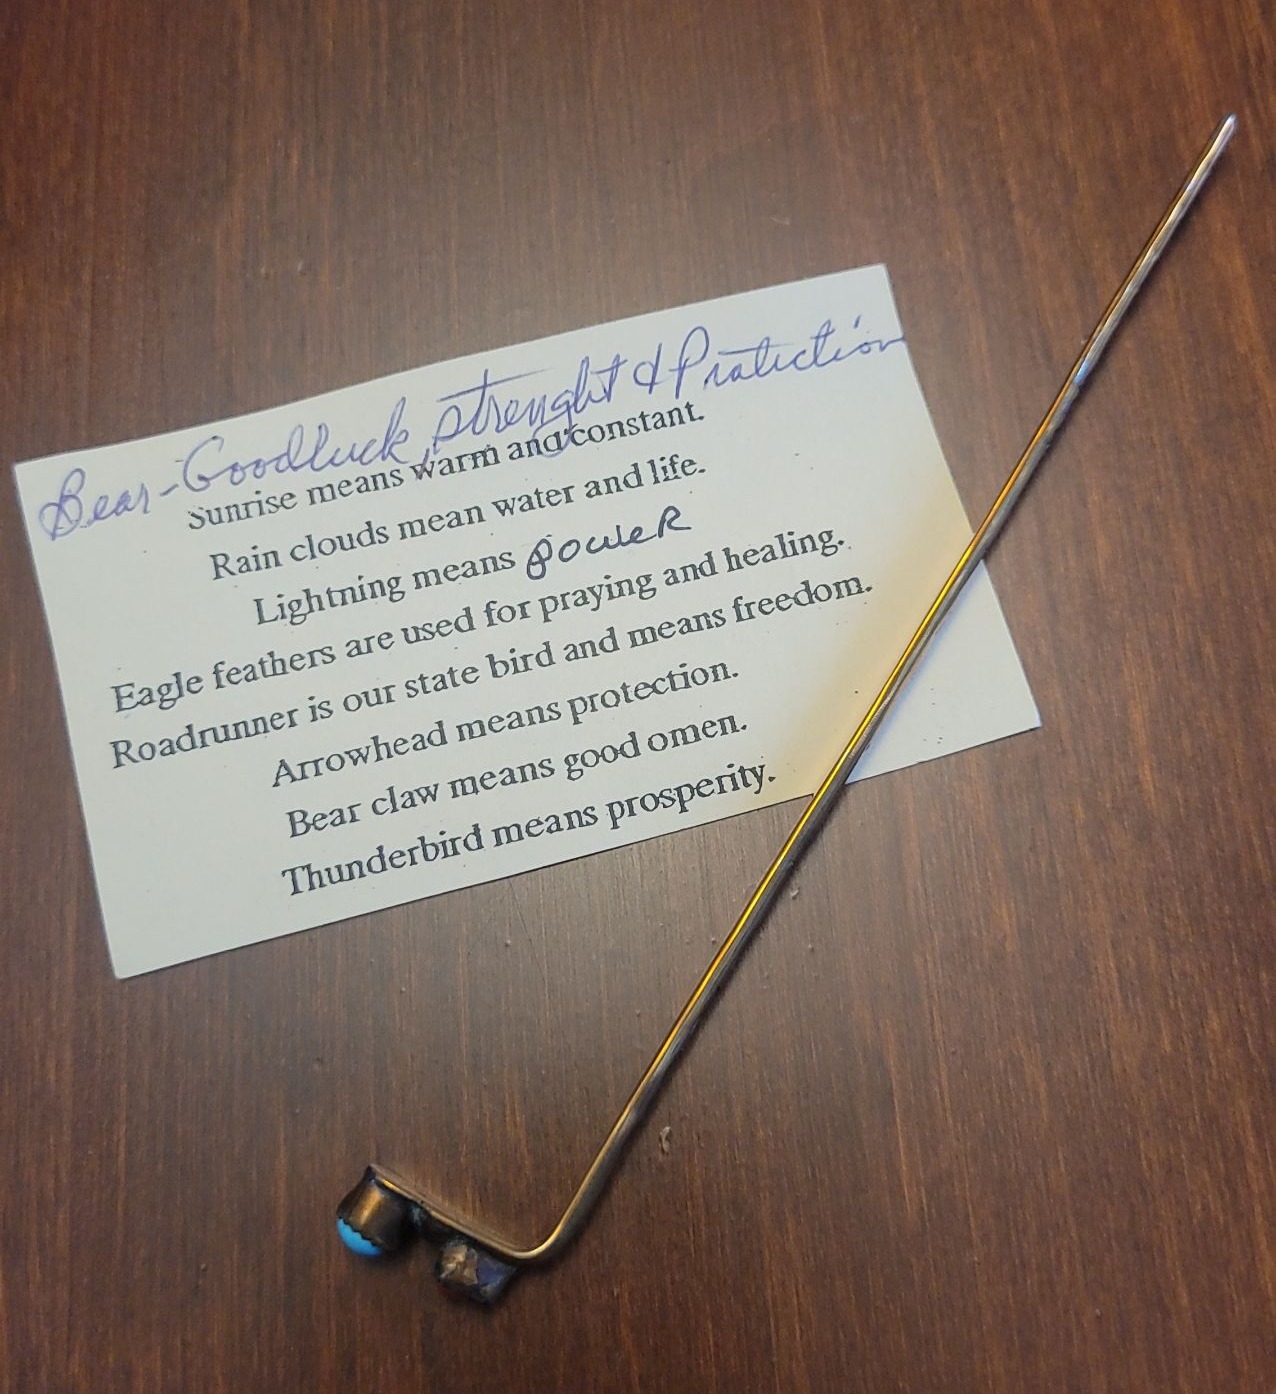 Bear-Goodluck, strenght & Pratection
Sunrise means warm and constant.
Rain clouds mean water and life.
Lightning means poweR
Eagle feathers are used for praying and healing.
Roadrunner is our state bird and means freedom.
Arrowhead means protection.
Bear claw means good omen.
Thunderbird means prosperity.